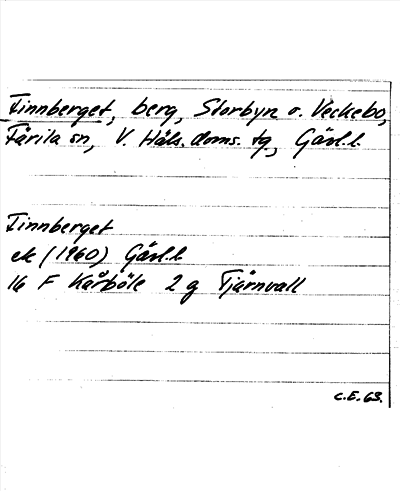 Finnberget, berg, Storbyn o. Veckebo,
Färila sn, V. Häls. doms. tg, Gävl.l.
Finnberget
ek (1960) Gävl.l.
16 F Kårböle 2 g Tjärnvall
C.E. 63.